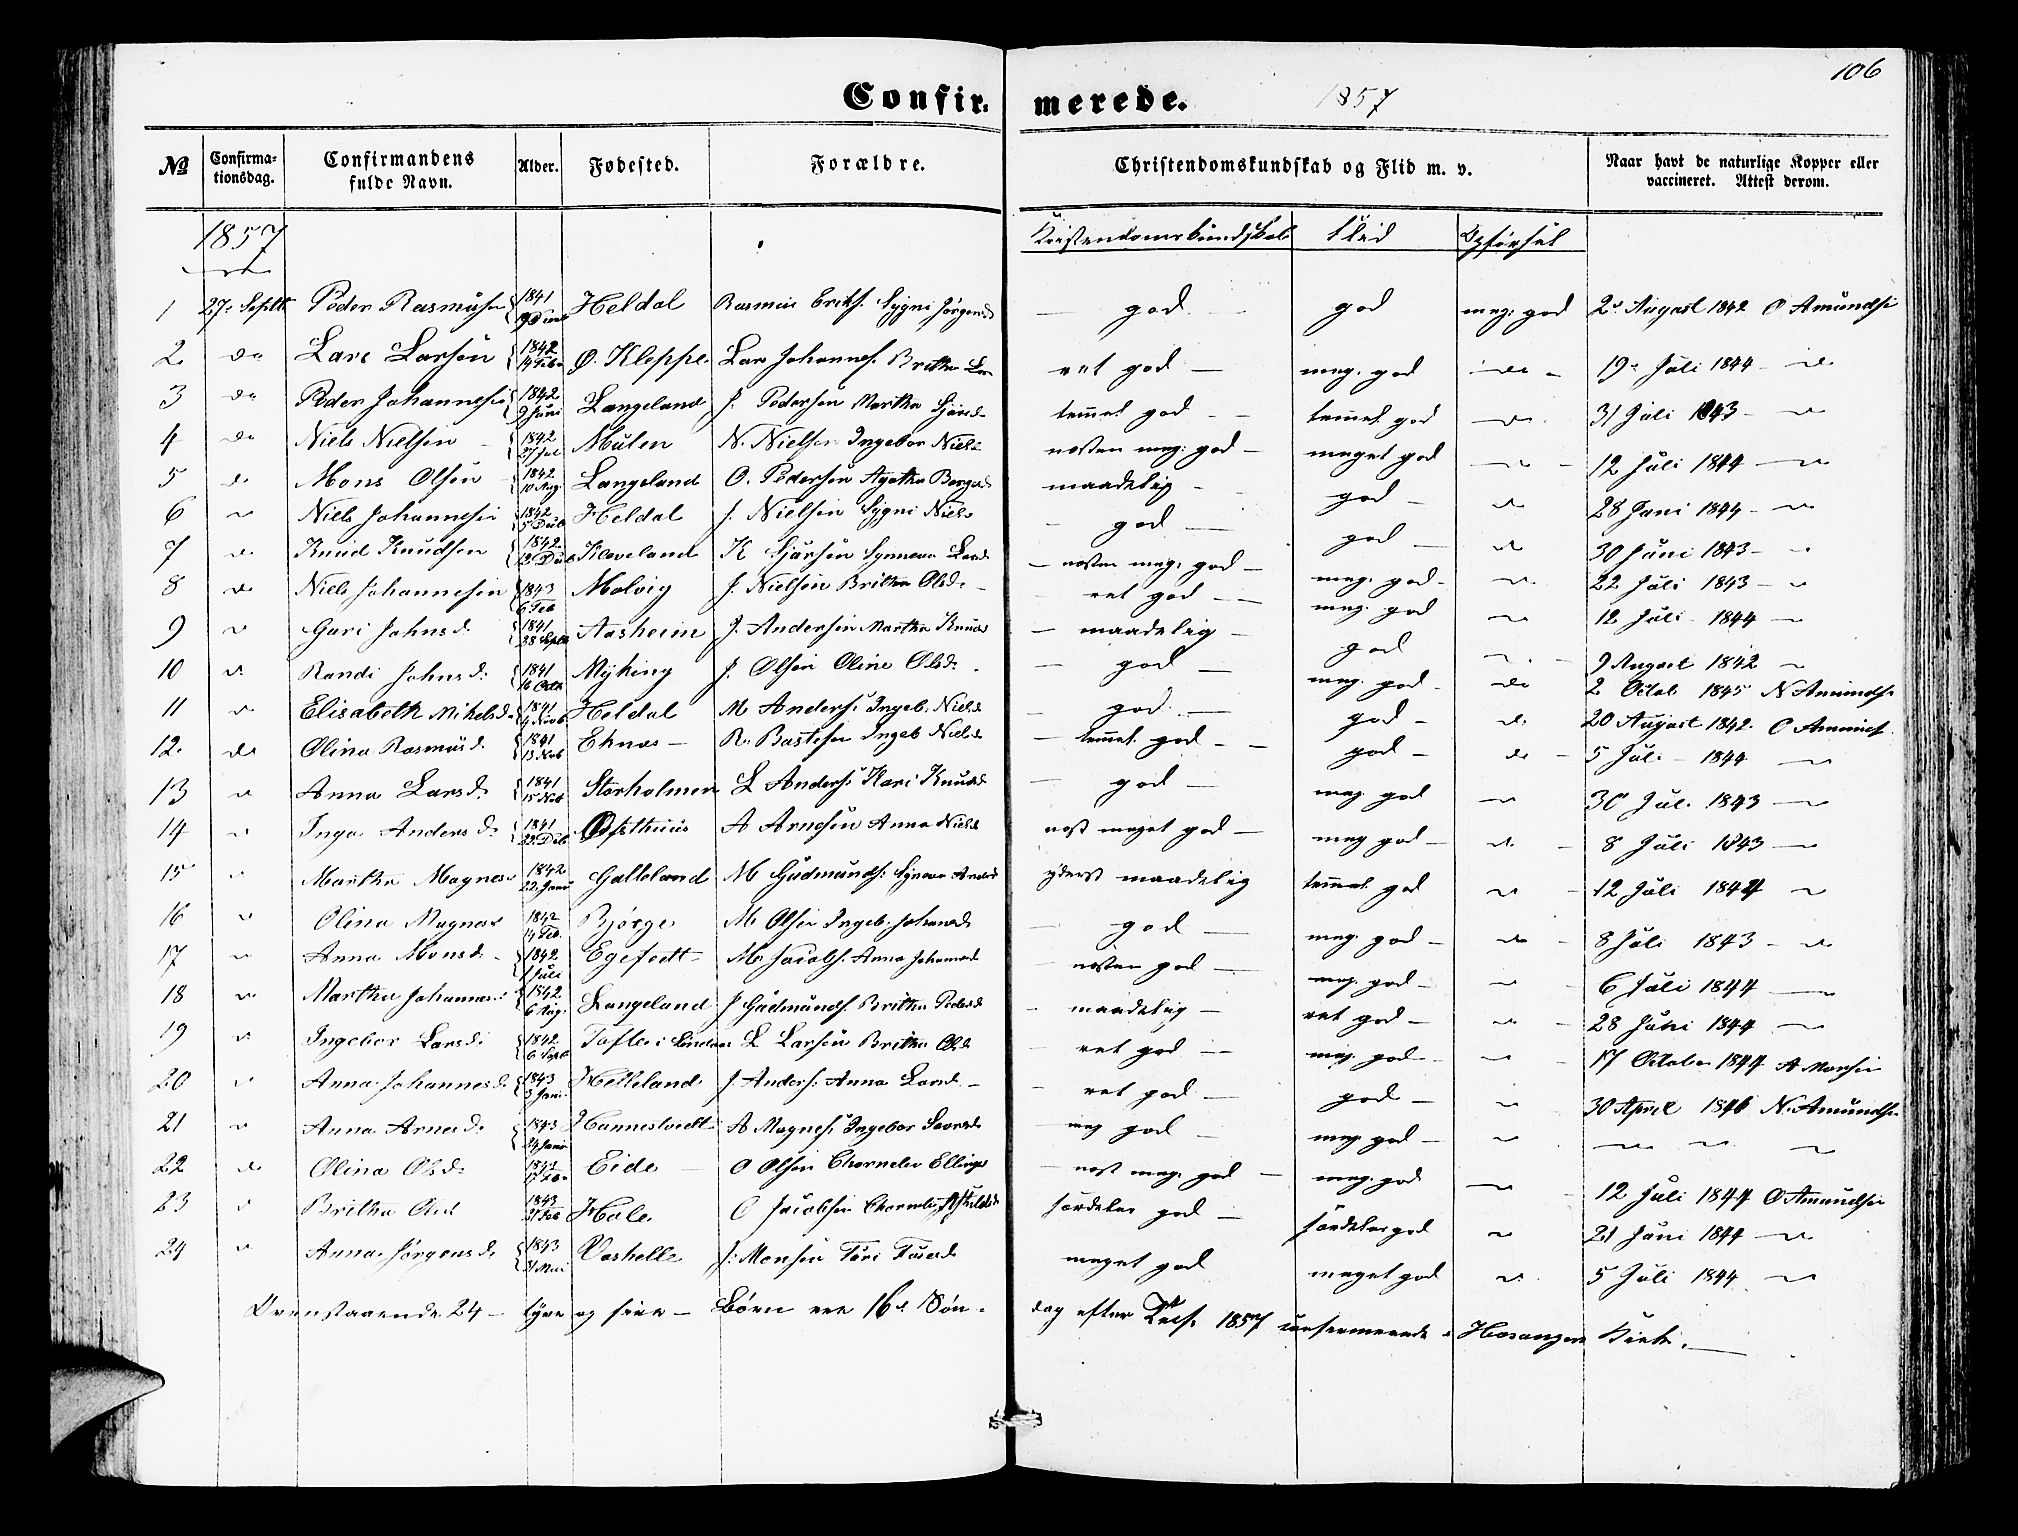 106
Confir- merede. 1857
№ Confirma-tionsdag. Confirmandens fulde Navn. Alder. Fødested. Forældre. Christendomskundskab og Flid m. v. Naar havt de naturlige Kopper eller vaccineret. Attest derom.
1857 Kristendomskundskab Flid Opførsel
1 27 Septb Peder Rasmusen 1841 Heldal Rasmus Eriks. Sygni Jørgensd god god meg. god 2 August 1842 O Amundse
2 do Lars Larsen 1842 14 Feb Ø. Kleppe Lars Johannes. Britha Lars ret god meg. god do 19 Juli 1844 do
3 do Peder Johannese 1842 9 Juni Langeland J. Pedersen Martha temmel god temmel god do 31 Juli 1843 do
4 do Niels Nielsen 1842 27 Jul Mulen N. Nielsen Ingebor Niels næsten meg. god meget god do 12 Juli 1844 do
5 do Mons Olsen 1842 10 Aug Langeland O. Pedersen Agatha maadelig god do 28 Juni 1844 do
6 do Niels Johannesen 1842 Heldal J. Nielsen Sygni Niels god god do 30 Juni 1843 do
7 do Knud Knudsen 1842 Kleveland K Synneva Larsd næsten meg. god meg. god do 22 Juli 1843 do
8 do Niels Johannesen 1843 6 Feb Molvig J. Nielsen Britha Olsd. ret god meg. god do 12 Juli 1844 do
9 do Guri Johnsd 1841 28 Septb Aasheim J. Andersen Martha Knuds maadelig god do 9 August 1842 do
10 do Randi Johnsd. 1841 16 Octb Myking J. Olsen Oline Olsd. god meg. god do 2 Octob 1845 N Amundse
11 do Elisabeth Mikelsd. 1841 4 Novb Heldal M Anders. Ingeb. Nielsd god god do 20 August 1842 O Amundse
12. do Olina Rasmusd. 1841 13 Nob Eknes R. Ingeb Nielsd temmel god god do 5 Juli 1844 do
13 do Anna Larsd. 1841 15 Nob Storholmen L Anders. Kari Knudsd god meg. god do 30 Jul. 1843 do
14 do Inga Andersd. 1841 22 Deb Østhuus A Arnesen Anna Nielsd næst meget god meg god do 8 Juli 1843 do
15 do Martha Magnes 1842 22 Janu Galteland M Gudmunds. Syneva Andersd yderst maadelig temmel god do 12 Juli 1844 do
16 do Olina Magnes 1842 14 Feb. Bjørge M Olsen Ingeb. Johansd god meg. god do 8 Juli 1843 do
17 do Anna Monsd. 1842 1 Juli M Jacobs. Anna Johannesd næsten god meg. god do 6 Juli 1844 do
18 do Martha Johannesd. 1842 6 Aug. Langeland J Gudmunds. Britha Pedersd maadelig ret god do 28 Juni 1844 do
19 do Ingebor Larsd. 1842 6 Septb L Larsen Britha Olsd ret god meg. god do 17 October 1844 A Monsen
20 do Anna Johannesd. 1843 3 Jani. Helleland J. Anders. Anna Larsd. ret god god do 30 April 1846 N. Amundse
21 do Anna Arnesd. 1843 24 Janu Hannestvedt A Magnes. Ingebor Sjursd meg god meg. god do do do do
22 do Olina Olsd. 1843 Eide O Olsen Chornelia Ellings næst meg. god meg. god do 12 Juli 1844 O Amundse
23 do Britha Olsd 1843 21 Feb Hole O Jacobsen Chorneli særdeles god særdeles god do 21 Juni 1844 do
24 do Anna Jørgensd. 1843 31 Mai Vashelle J. Monsen Turi meget god meget god do 5 Juli 1844 do
Ovenstaaende 24 - tyve og fire - Børn ere 16de Søn- dag efter Tref. 1857 confirmerede i Hosanger Kirke.